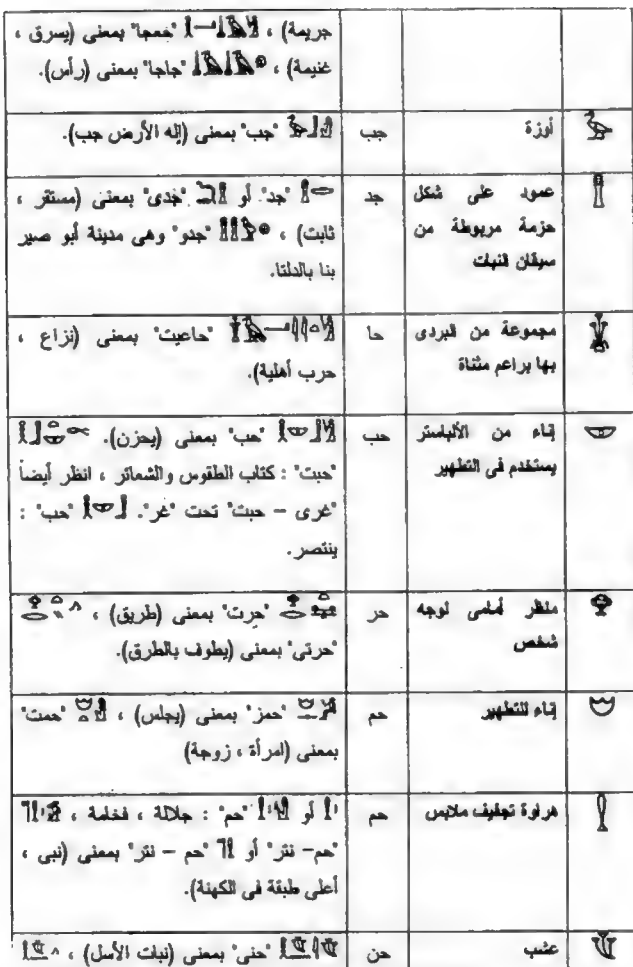 جريمة) ، "خعجا" بمعنى (يسرق ،
غنيمة) ، "جاجا" بمعنى (رأس).
أوزة
جب
"جب" بمعنى (إله الأرض جب).
عمود على شكل
حزمة مربوطة من
سيقان النبات
جد
"جد" أو "جدى" بمعنى (مستقر ،
ثابت) ، "جدو" وهى مدينة أبو صير
بنا بالدلتا.
مجموعة من البردى
بها براعم مثناة
حا
"حاعيت" بمعنى (نزاع ،
حرب أهلية).
إناء من الألباستر
يستخدم فى التطهير
حب
"حب" بمعنى (يحزن).
"حبت" : كتاب الطقوس والشعائر ، انظر أيضاً
"غرى – حبت" تحت "غر". "حب" :
ينتصر.
منظر أمامى لوجه
شخص
حر
"حرت" بمعنى (طريق) ،
"حرتى" بمعنى (يطوف بالطرق).
إناء للتطهير
حم
"حمز" بمعنى (يجلس) ، "حمت"
بمعنى (امرأة ، زوجة)
هراوة تجفيف ملابس
حم
أو "حم" : جلالة ، فخامة ،
"حم– نتر" أو "حم – نتر" بمعنى (نبى ،
أعلى طبقة فى الكهنة).
عشب
حن
"حنى" بمعنى (نبات الأسل) ،